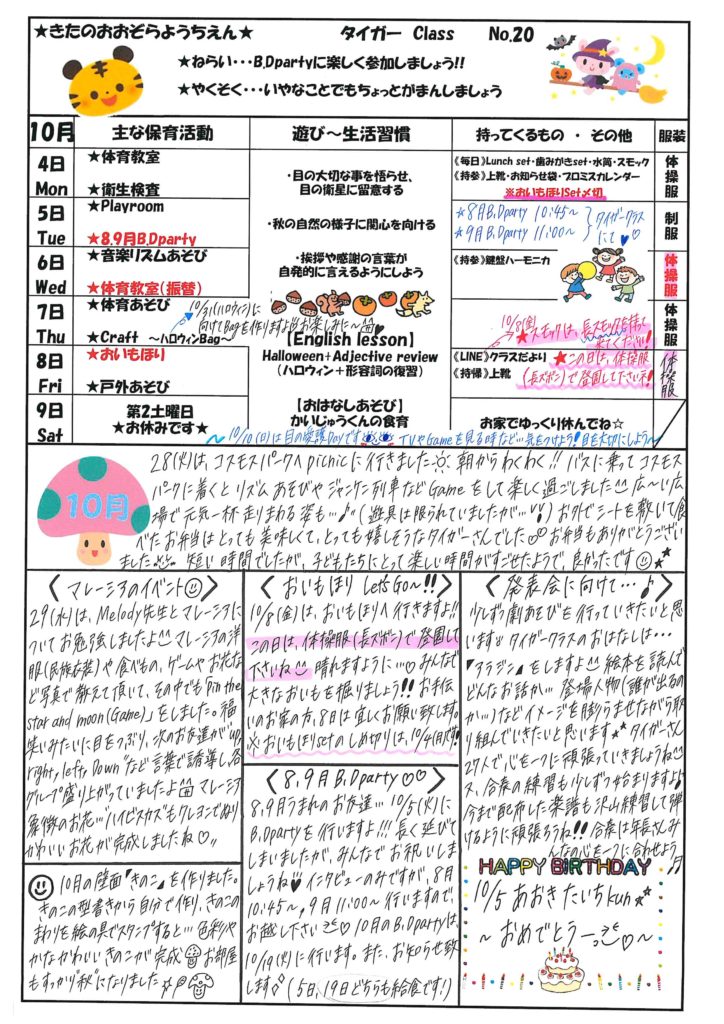 ★きたのおおぞらようちえん★ タイガー Class No.20
★ねらい・・・B.Dpartyに楽しく参加しましょう!!
★やくそく・・・いやなことでもちょっとがまんしましょう
10月 主な保育活動 遊び～生活習慣 持ってくるもの ・ その他 服装
4日 Mon
★体育教室
★衛生検査
5日 Tue
★Playroom
★8.9月B.Dparty
6日 Wed
★音楽リズムあそび
★体育教室(振替)
7日 Thu
★体育あそび
10/31(ハロウィン)に
向けてBagを作りますよ お楽しみに～
★Craft ～ハロウィンBag～
8日 Fri
★おいもほり
★戸外あそび
9日 Sat
第2土曜日
★お休みです★
・目の大切な事を悟らせ、
目の衛星に留意する
・秋の自然の様子に関心を向ける
・挨拶や感謝の言葉が
自発的に言えるようにしよう
【English lesson】
Halloween+Adjective review
(ハロウィン+形容詞の復習)
【おはなしあそび】
かいじゅうくんの食育
《毎日》Lunch set・歯みがきset・水筒・スモック
《持参》上靴・お知らせ袋・プロミスカレンダー
※おいもほりSet〆切
★8月B.Dparty 10:45～
★9月B.Dparty 11:00～
タイガークラス
にて♥♡
《持参》鍵盤ハーモニカ
10/8(金)
★スモックは、長スモックを持って
来てください!
《LINE》クラスだより ★この日は、体操服
《持帰》上靴 (長ズボン)で登園して下さいネ!
お家でゆっくり休んでね☆
体操服
制服
体操服
体操服
体操服
～10/10(日)は目の愛護Dayです TVやGameを見る時など…気をつけよう!目を大切にしよう～
10月
28(火)は、コスモスパークへpicnicに行きました 朝からわくわく!! バスに乗ってコスモス
パークに着くとリズムあそびやジャンケン列車などGameをして楽しく過ごしました 広～い広
場で元気一杯走りまわる姿も…♪(遊具は限られていましたが…!!)お外でシートを敷いて食
べたお弁当はとっても美味しくて、とっても嬉しそうなタイガーさんでした♡お弁当もありがとうござい
ました 短い時間でしたが、子どもたちにとって楽しい時間がすごせたようで、良かったです☺★
〈マレーシアのイベント☺〉
29(水)は、Melody先生とマレーシアに
ついてお勉強しましたよ マレーシアの洋
服(民族衣装)や食べもの、ゲームやお花な
ど写真で教えて頂いて、その中でも「Pin the
star and moon(Game)」をしました。福
笑いみたいに目をつぶり、次のお友達が“up,
right, left, Down”など言葉で誘導し、各
グループ盛り上がっていましたよ マレーシア
象徴のお花…“ハイビスカス”もクレヨンでぬり
かわいいお花が完成しましたね♡
☺10月の壁面「きのこ」を作りました。
きのこの型書きから自分で作り、きのこの
まわりを絵の具でスタンプすると…色彩や
かなかわいいきのこが完成 お部屋
もすっかり“秋”になりました
〈おいもほり Let's Go～!!〉
10/8(金)は、おいもほりへ行きますよ!!
この日は、体操服(長ズボン)で登園して
下さいね☺晴れますように…♡みんなで
大きなおいもを掘りましょう!!お手伝
いのお家の方、8日は宜しくお願い致します。
※おいもほりsetのしめ切りは、10/4(月)です!!
〈8,9月B.Dparty♡♡〉
8,9月うまれのお友達…10/5(火)に
B.Dpartyを行いますよ!!!長く延びて
しまいましたが、みんなでお祝いしま
しょうね♥インタビューのみですが、8月
10:45～、9月11:00～行いますので、
お越し下さい 10月のB.Dpartyは、
10/19(火)に行います。また、お知らせ致
します (5日,19日どちらも給食です!)
〈発表会に向けて…♪〉
少しずつ劇あそびを行っていきたいと思
います タイガークラスのおはなしは…
「アラジン」をしますよ 絵本を読んで
どんなお話か…登場人物(誰が出るの
か…)などイメージを膨らませながら取
り組んでいきたいと思います★タイガーさん
27人で心を一つに頑張っていきましょうね
又、合奏の練習も少しずつ始まりますよ!
今まで配布した楽譜も沢山練習して弾
けるように頑張ろうね!!合奏は年長さんみ
んなの心を一つに合わせよう♬
HAPPY BIRTHDAY
10/5 あおきたいちkun★
～おめでとう～♡～